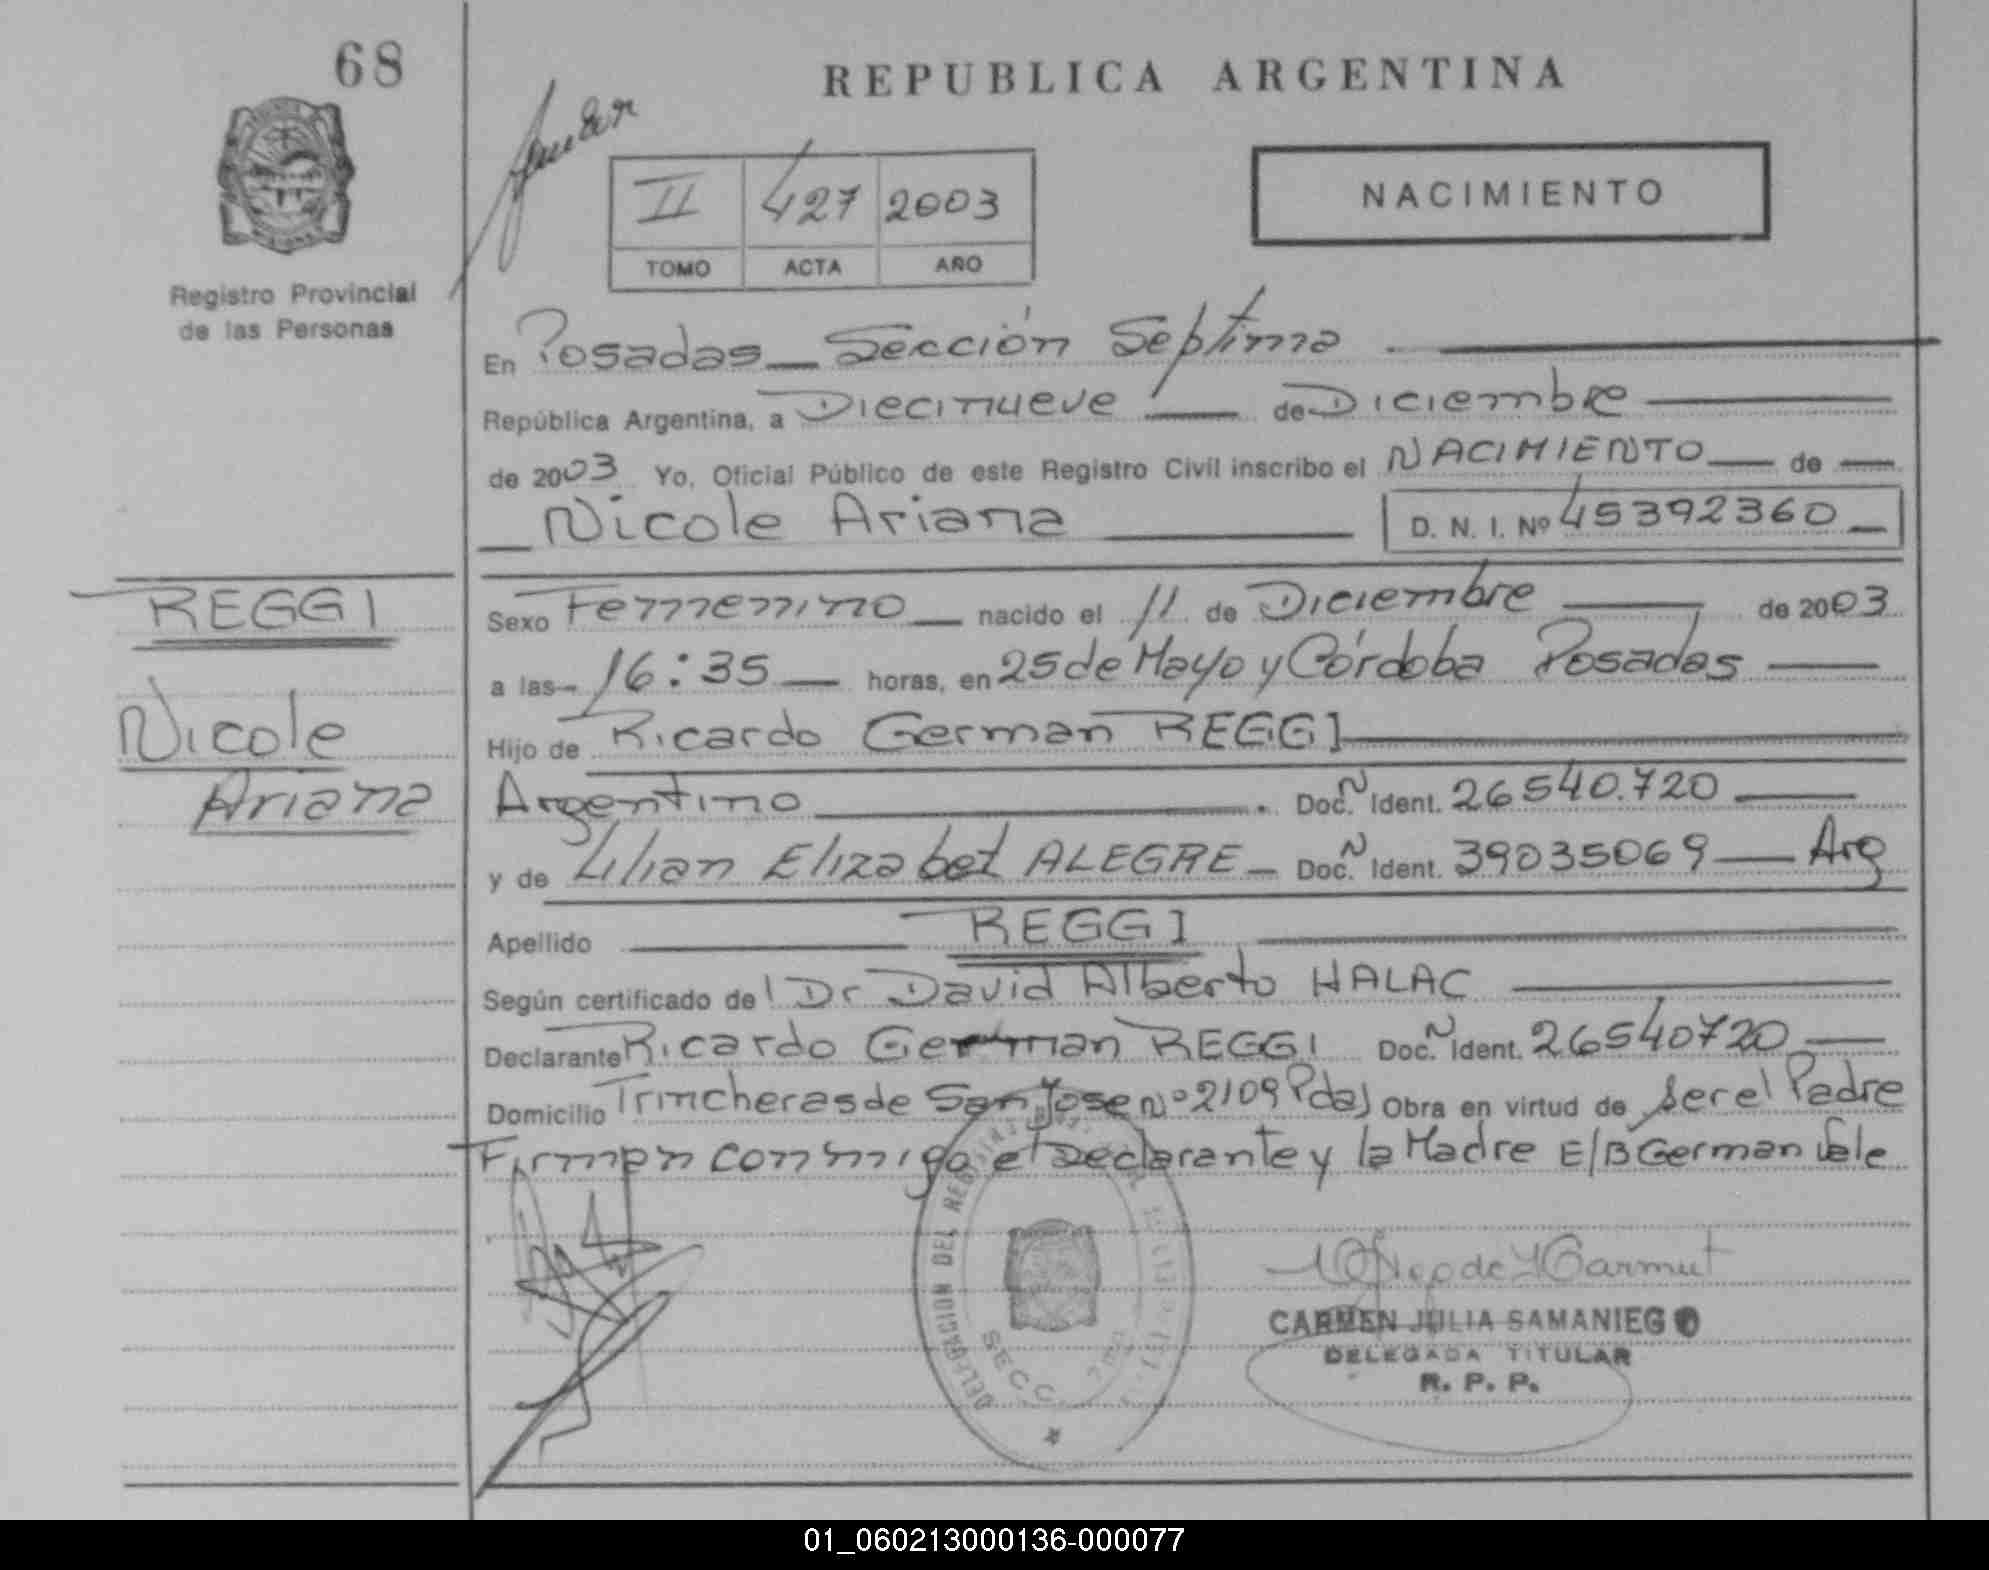 68
REPUBLICA ARGENTINA
II 427 2003
TOMO ACTA AÑO
NACIMIENTO
Registro Provincial
de las Personas
En Posadas Sección Septima
República Argentina, a Diecinueve de Diciembre
de 2003 Yo, Oficial Público de este Registro Civil inscribo el NACIMIENTO de
Nicole Ariana D. N. I. Nº 45392360
REGGI
Nicole
Ariana
Sexo Femenino nacido el 11 de Diciembre de 2003
a las 16:35 horas, en 25 de Mayo y Córdoba Posadas
Hijo de Ricardo German REGGI
Argentino Doc. Ñ Ident. 26540.720
y de Lilian Elizabet ALEGRE Doc. Ñ Ident. 39035069 Arg
Apellido REGGI
Según certificado de Dr David Alberto HALAC
Declarante Ricardo German REGGI Doc. Ñ Ident. 26540720
Domicilio Trincheras de San Jose Nº 2109 Pdas Obra en virtud de ser el Padre
Firman conmigo el Declarante y la Madre E/B German Vale
DELEGACION DEL REGISTRO
SECC. 7ma
CARMEN JULIA SAMANIEGO
DELEGADA TITULAR
R. P. P.
01_060213000136-000077